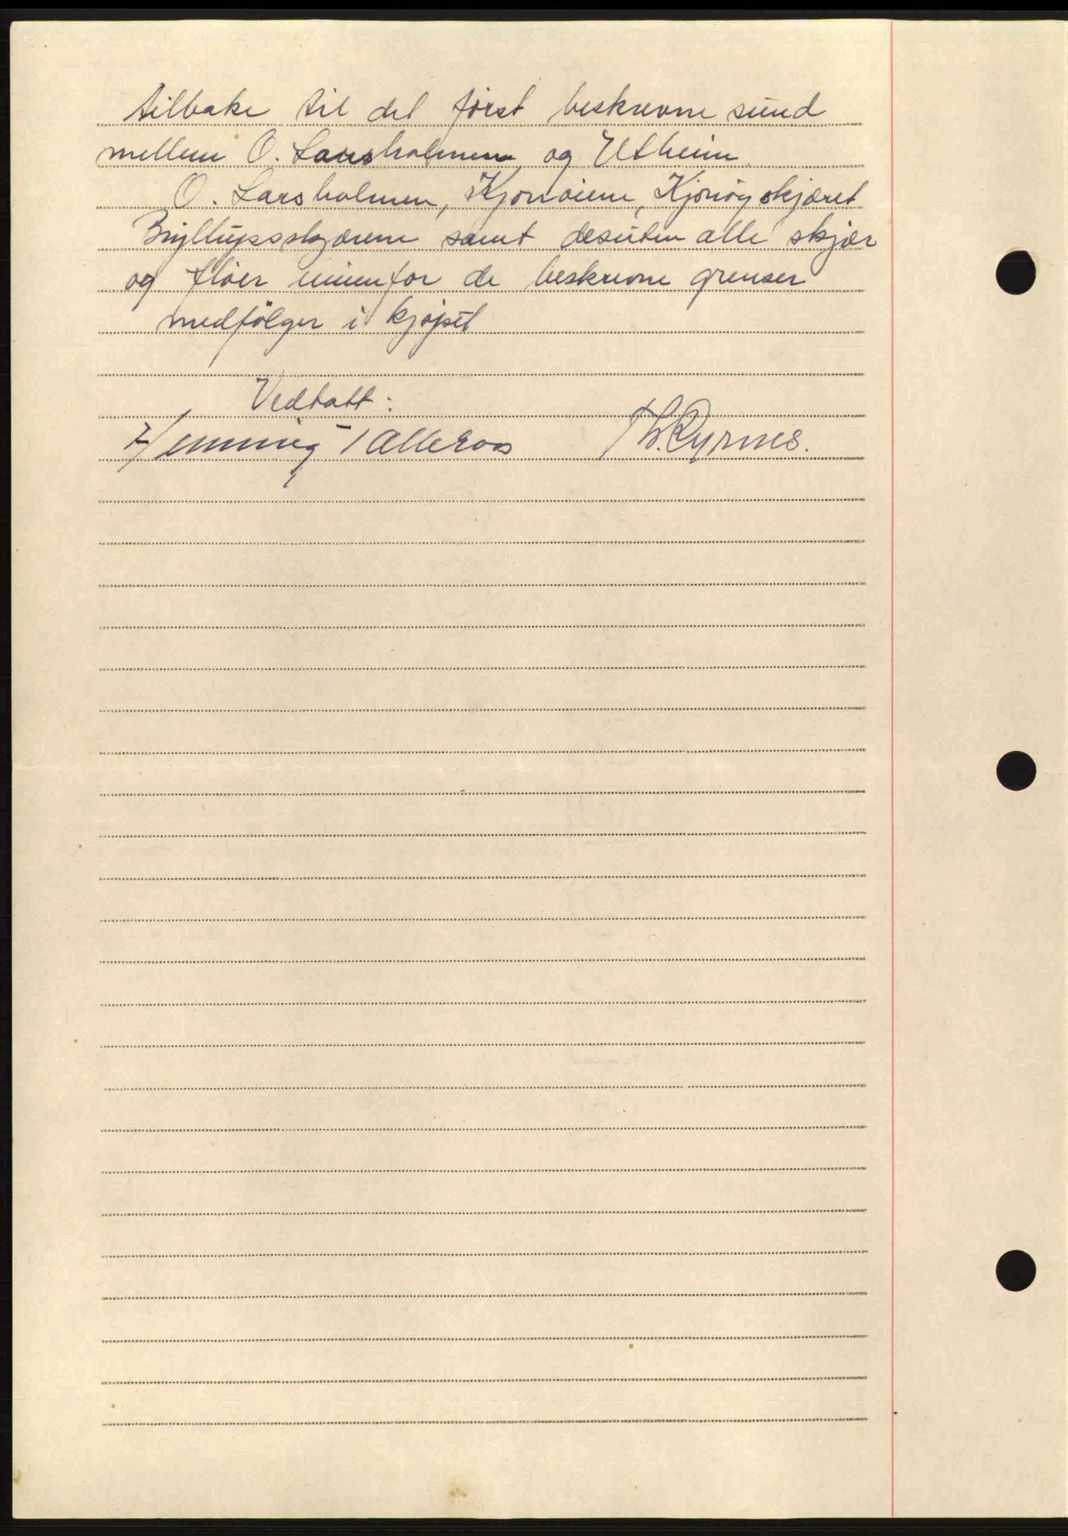 tilbake til det först beskrevne sund
mellem O. Larsholmen og Utheim.
O. Larsholmen, Kjönöiene, Kjönöyskjæret
Bryllupsskjærene samt desuten alle skjær
og flöer innenfor de beskrevne grenser
medfölger i kjöpet
Vedtatt:
Henning Th. Ryrnes.